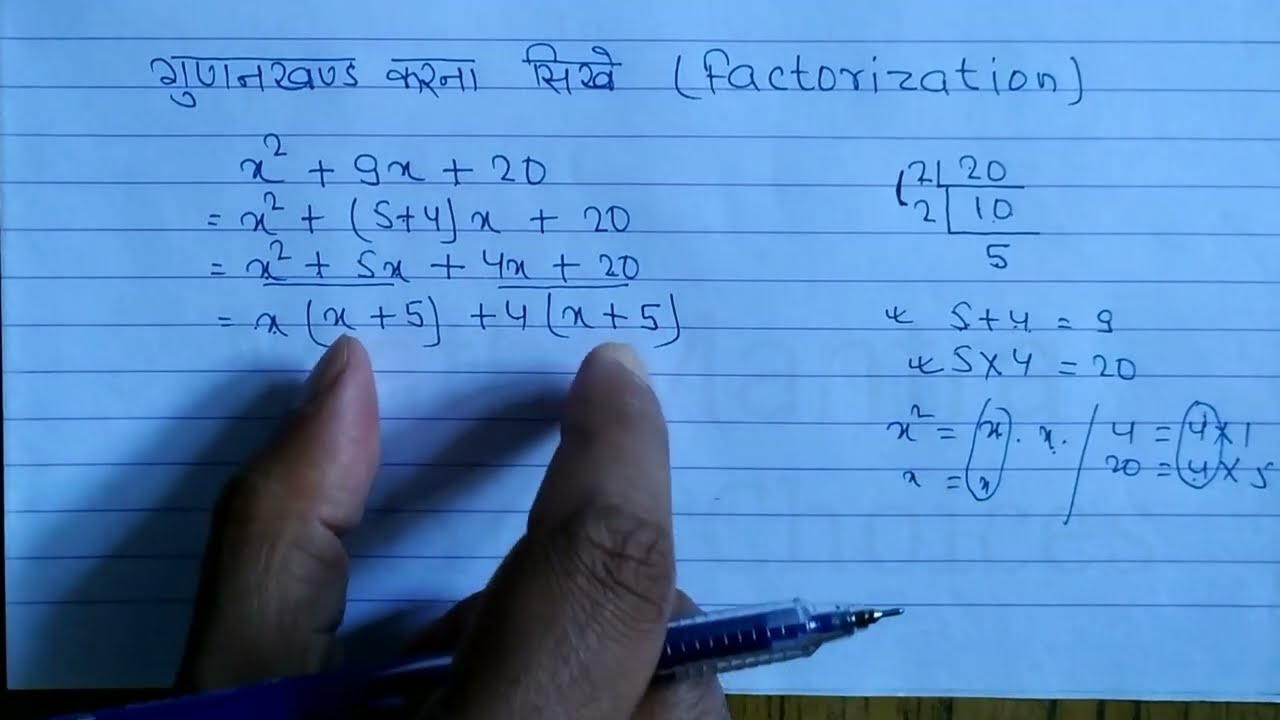 गुणनखण्ड करना सिखे (Factorization)
x² + 9x + 20
= x² + (5+4)x + 20
= x² + 5x + 4x + 20
= x (x + 5) + 4 (x + 5)
2 20
2 10
5
* 5 + 4 = 9
* 5 X 4 = 20
x² = x . x . / 4 = 4 X 1
x = x 20 = 4 X 5